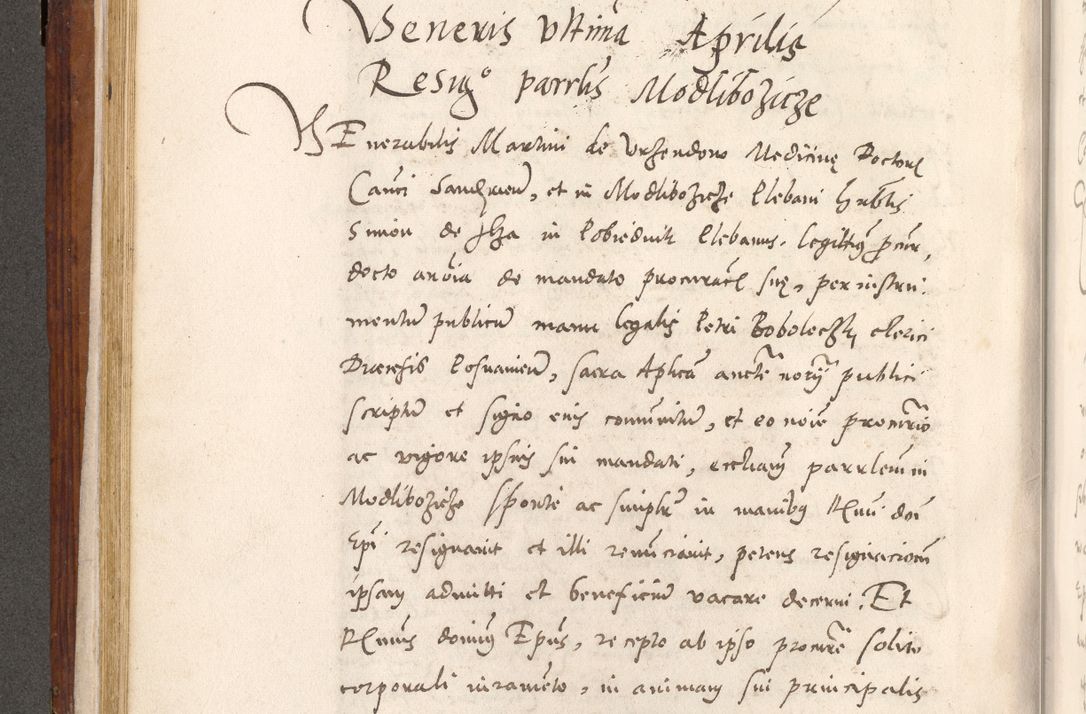 Veneris ultima Aprilis
Resigo parrlis Modlibozicze
VEnerabilis Martini de Urzendow Medicinę Doctoris
Canci Sandomirien, et in Modlibozicze Plebani hrablis
Simon de Ilza in Pobiednik Plebanus. legittimus procur,
docto an via de mandato procuracis suę, per instru:
mentum publicum manu legalis Petri Bobolecky clerici
Diocesis Posnanien, sacra Aplica anctte noty publici
scriptum et signo eius comunitum, et eo noie procurrio
ac vigore ipsius sui mandati, eccliam parrlem in
Modlibozicze sponte ac simplr in manibus Rmi doi
Epi resignavit et illi renunciavit, petens resignacionem
ipsam admitti et beneficium vacare decerni. Et
Rmus dominus Epus, recepto ab ipso procure solito
corporali iuramento, in animam sui principalis